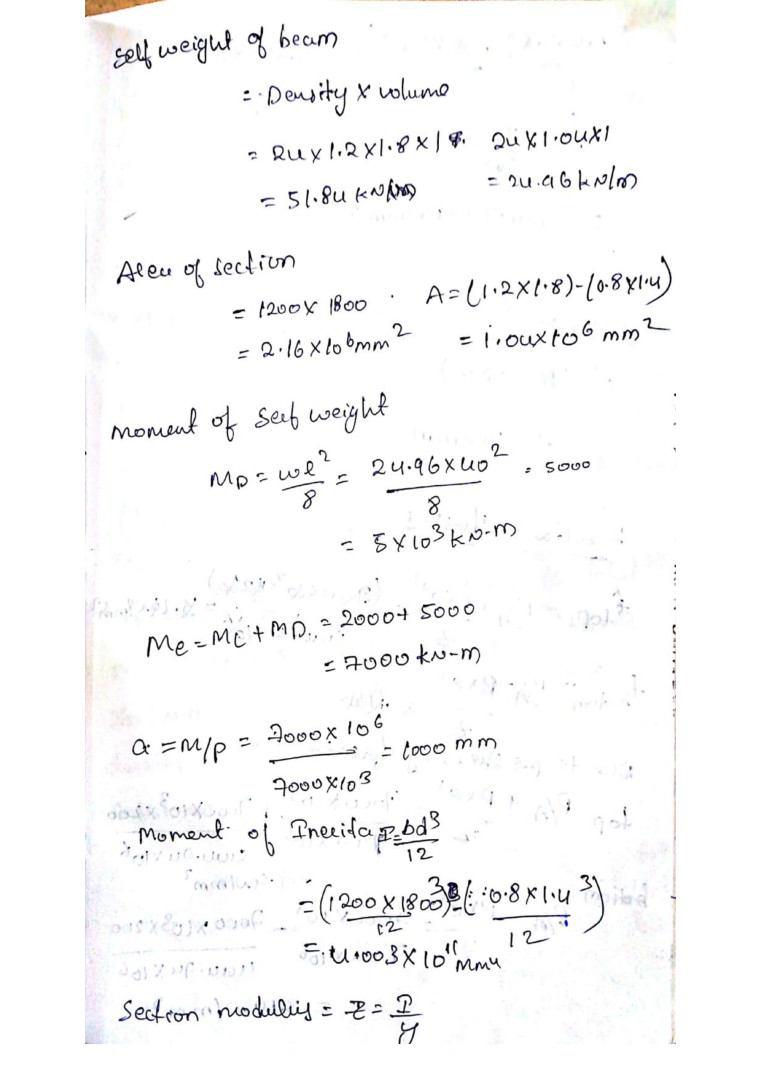 Self weight of beam
= Density x volume
= 24 x 1.2 x 1.8 x 1 24 x 1.04 x 1
= 51.84 kN/m = 24.96 kN/m
Area of section
= 1200 x 1800 A = (1.2 x 1.8) - (0.8 x 1.4)
= 2.16 x 10^6 mm^2 = 1.04 x 10^6 mm^2
Moment of Self weight
MD = wl^2/8 = 24.96 x 40^2/8 = 5000
= 5 x 10^3 kN-m
Me = Mc + MD = 2000 + 5000
= 7000 kN-m
a = M/P = 7000 x 10^6/7000 x 10^3 = 1000 mm
Moment of Inertia I = bd^3/12
= (1200 x 1800^3/12) - (0.8 x 1.4^3/12)
= 4.003 x 10^11 mm4
Section modulus = Z = I/y